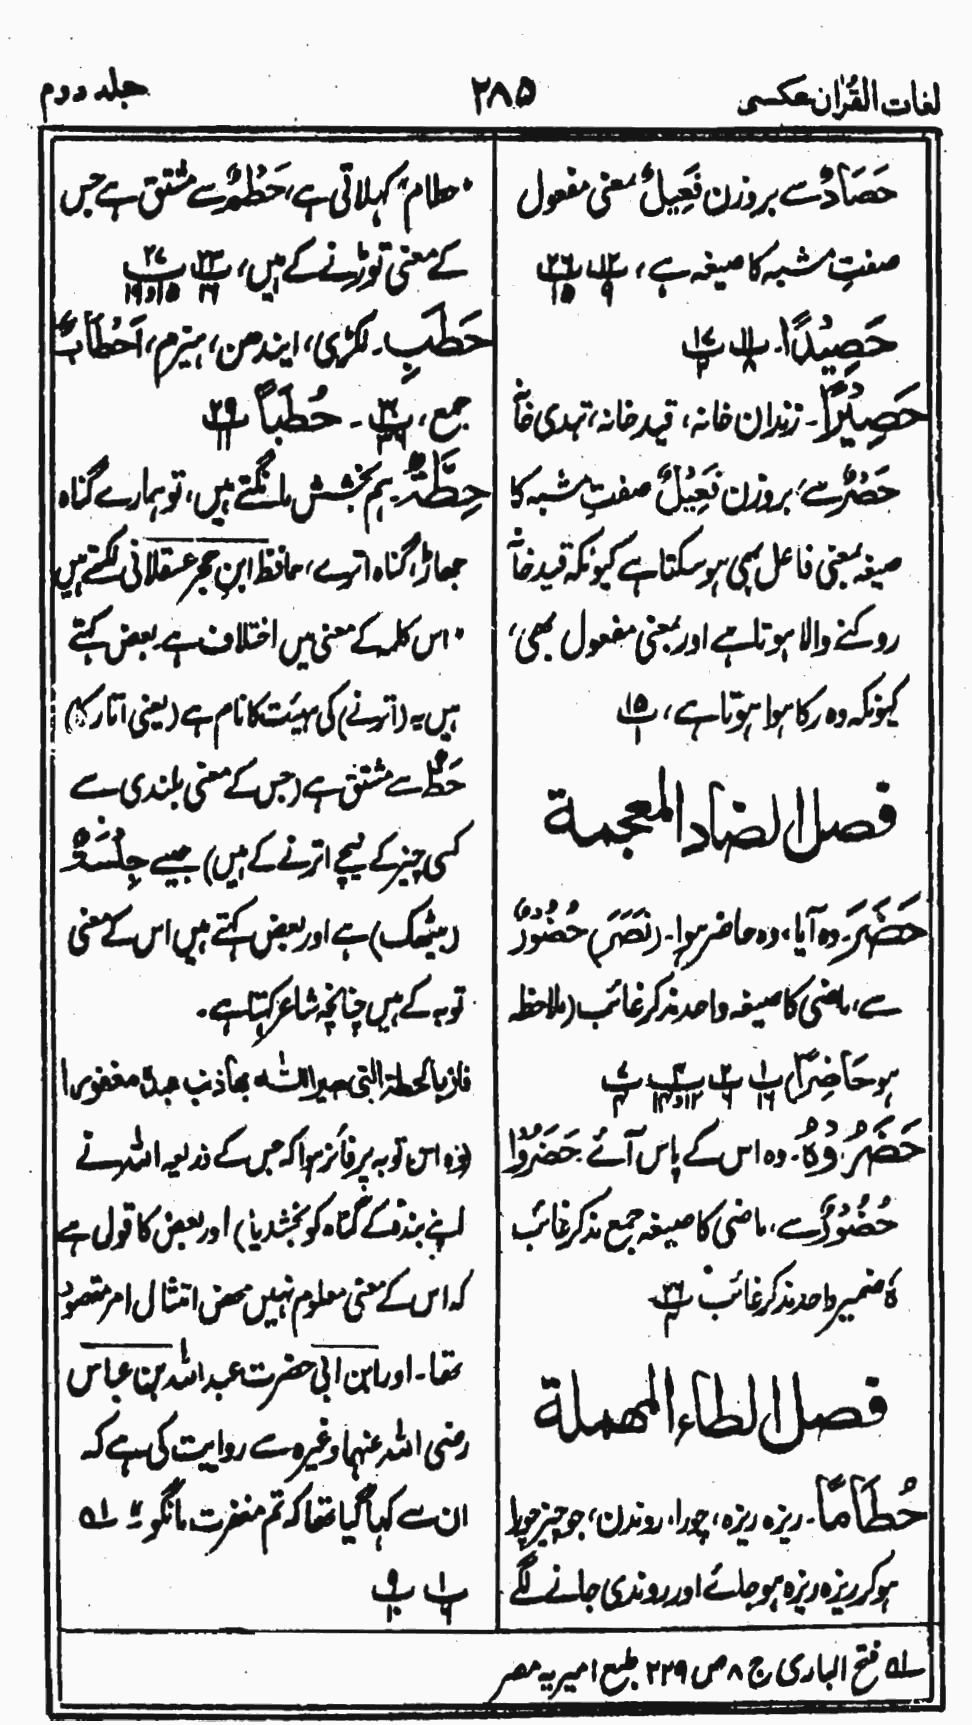 لغات القرآن عکسی
۲۸۵
جلد دوم
حَصَادٌ سے بروزن فَعِیلٌ بمعنی مفعول
صفتِ مشبہ کا صیغہ ہے، پ۱۲/۹ پ۲۶/۱۵
حَصِیْدًا۔ پ۱۱/۸ پ۱۷/۲
حَصِیْرًا۔ زندان خانہ، قید خانہ، بندی خانہ
حَصْرٌ سے، بروزن فَعِیْلٌ صفتِ مشبہ کا
صیغہ بمعنی فاعل بھی ہو سکتا ہے کیونکہ قید خانہ
روکنے والا ہوتا ہے اور بمعنی مفعول بھی،
کیونکہ وہ رکا ہوا ہوتا ہے، پ۱۵/۱
فصل الضاد المعجمة
حَضَرَ۔ وہ آیا، وہ حاضر ہوا۔ (نَصَرَ) حُضُوْرٌ
سے، ماضی کا صیغہ واحد مذکر غائب (ملاحظہ
ہو حَاضِرًا) پ۱/۱۶ پ۲/۶ پ۴/۱۲و۱۳ پ۷/۴
حَضَرُوْہُ۔ وہ اس کے پاس آئے۔ حَضَرُوْا
حُضُوْرٌ سے، ماضی کا صیغہ جمع مذکر غائب
ہٗ ضمیر واحد مذکر غائب پ۲۶/۴
فصل الطاء المهملة
حُطَامًا۔ ریزہ ریزہ، چورا، روندن، جو چیز چورا
ہو کر ریزہ ریزہ ہو جائے اور روندی جانے لگے
"حطام" کہلاتی ہے، حَطْمٌ سے مشتق ہے جس
کے معنی توڑنے کے ہیں، پ۲۳/۱۶ پ۲۷/۱۵و۱۹
حَطَبِ۔ لکڑی، ایندھن، ہیزم، اَحْطَابٌ
جمع، پ۳۰/۳۶۔ حَطَبًا پ۲۹/۱۱
حِطَّةٌ۔ ہم بخشش مانگتے ہیں، تو ہمارے گناہ
جھاڑ، گناہ اترے، حافظ ابن حجر عسقلانی لکھتے ہیں
"اس کلمہ کے معنی میں اختلاف ہے۔ بعض کہتے
ہیں یہ (اترنے) کی ہیئت کا نام ہے (یعنی اتار کا)
حَطٌّ سے مشتق ہے (جس کے معنی بلندی سے
کسی چیز کے نیچے اترنے کے ہیں) جیسے جِلْسَةٌ
(بیٹھک) ہے اور بعض کہتے ہیں اس کے معنی
توبہ کے ہیں چنانچہ شاعر کہتا ہے۔
فاز بالحطة التی صیر اللہ بها ذنب عبدہ مغفورا
(وہ اس توبہ پر فائز ہوا کہ جس کے ذریعہ اللہ نے
اپنے بندہ کے گناہ کو بخشدیا) اور بعض کا قول ہے
کہ اس کے معنی معلوم نہیں محض امتثال امر مقصود
تھا۔ اور ابن ابی حضرت عبد اللہ بن عباس
رضی اللہ عنہما وغیرہ سے روایت کی ہے کہ
ان سے کہا گیا تھا کہ تم مغفرت مانگو" ۱ھ
پ۱/۶ پ۹/۱۰
۱ھ فتح الباری ج ۸ ص ۲۲۹ طبع امیریہ مصر